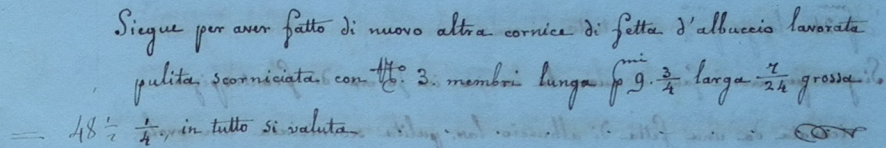 Siegue per aver fatto di nuovo altra cornice di fetta d'albuccio lavorata
pulita scorniciata con N.º 3. membri lunga pmi 9. 3/4 larga 7/24 grossa
= 48 1/2 1/4, in tutto si valuta . . . . . . .